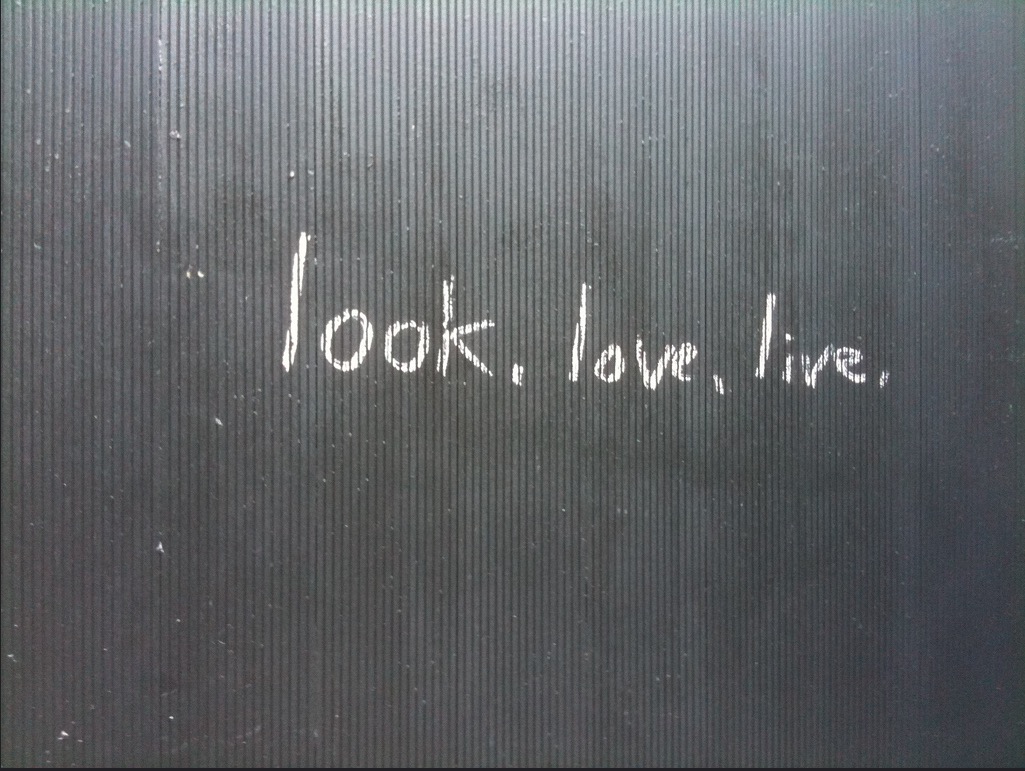 look. love. live.